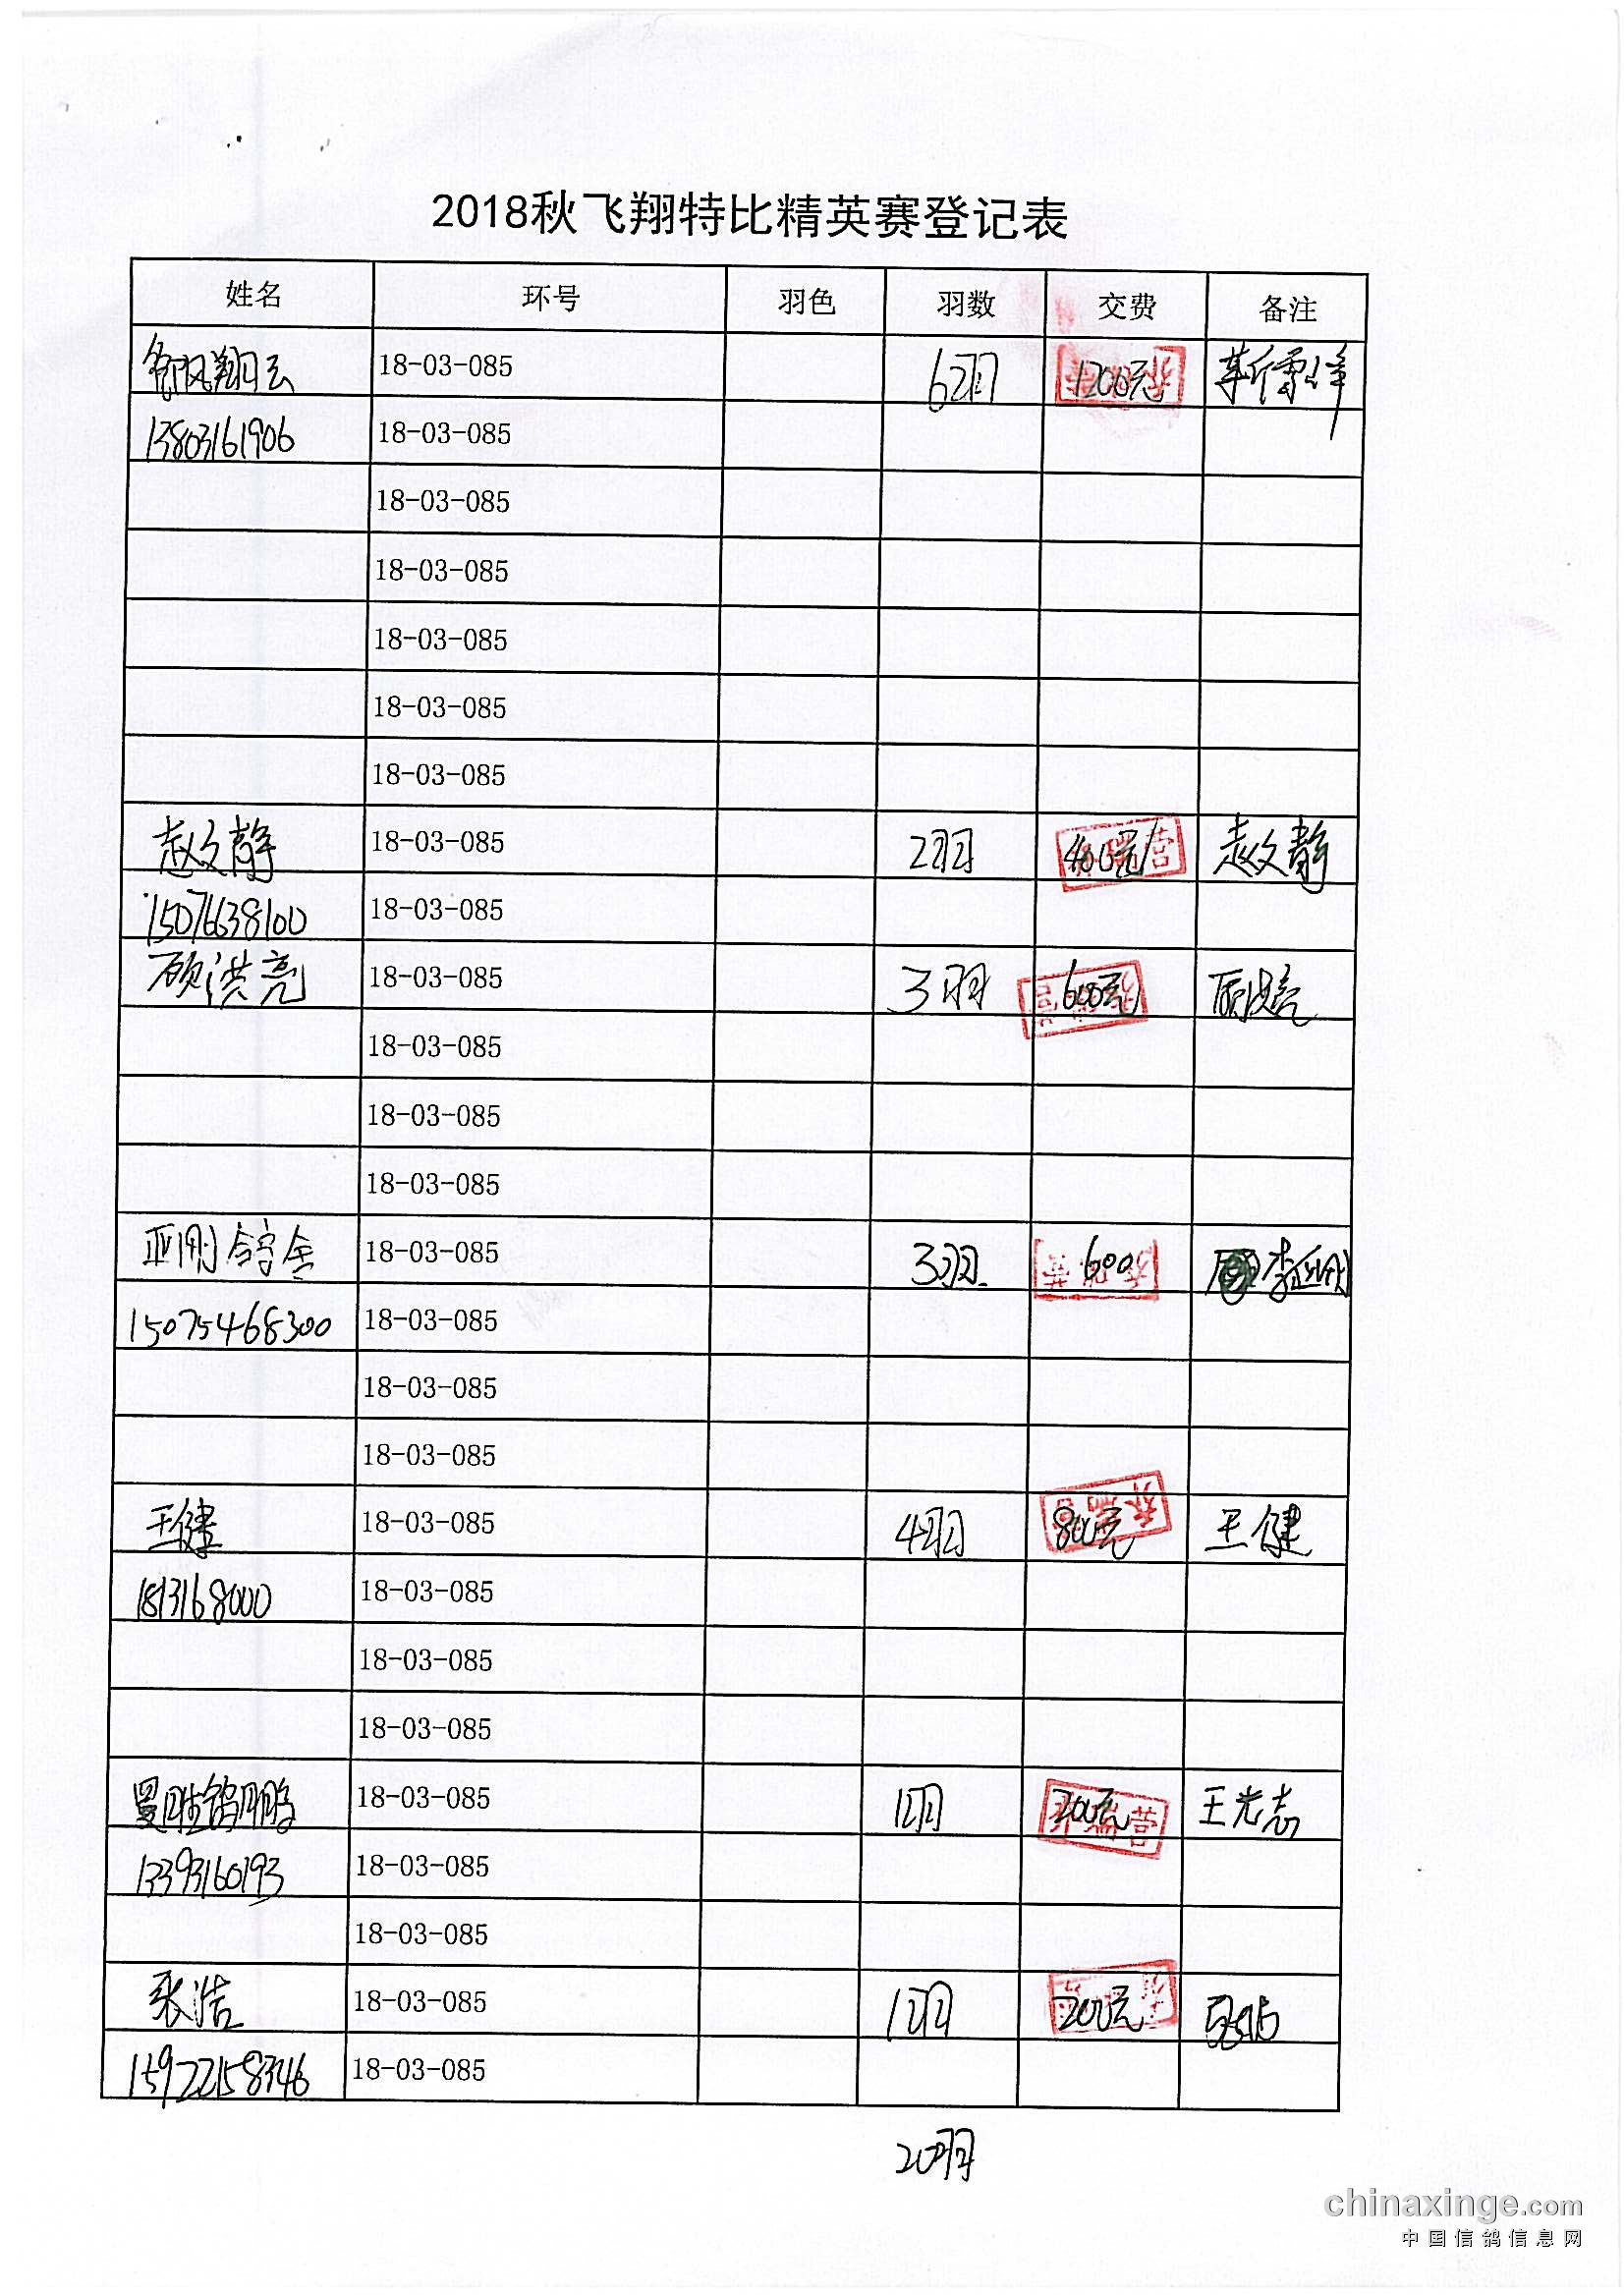 2018秋飞翔特比精英赛登记表
姓名 环号 羽色 羽数 交费 备注
风翔 18-03-085 6羽 1200元 靳雪峰
13803161906 18-03-085
18-03-085
18-03-085
18-03-085
18-03-085
18-03-085
赵文静 18-03-085 2羽 400元 赵文静
15076638100 18-03-085
顾洪亮 18-03-085 3羽 600元 顾洪亮
18-03-085
18-03-085
18-03-085
亚刚鸽舍 18-03-085 3羽 600 李亚刚
15075468300 18-03-085
18-03-085
18-03-085
王健 18-03-085 4羽 800元 王健
1813168000 18-03-085
18-03-085
18-03-085
18-03-085 1羽 200元 王光志
13393160193 18-03-085
18-03-085
张浩 18-03-085 1羽 200元
15922158346 18-03-085
20羽
chinaxinge.com
中国信鸽信息网